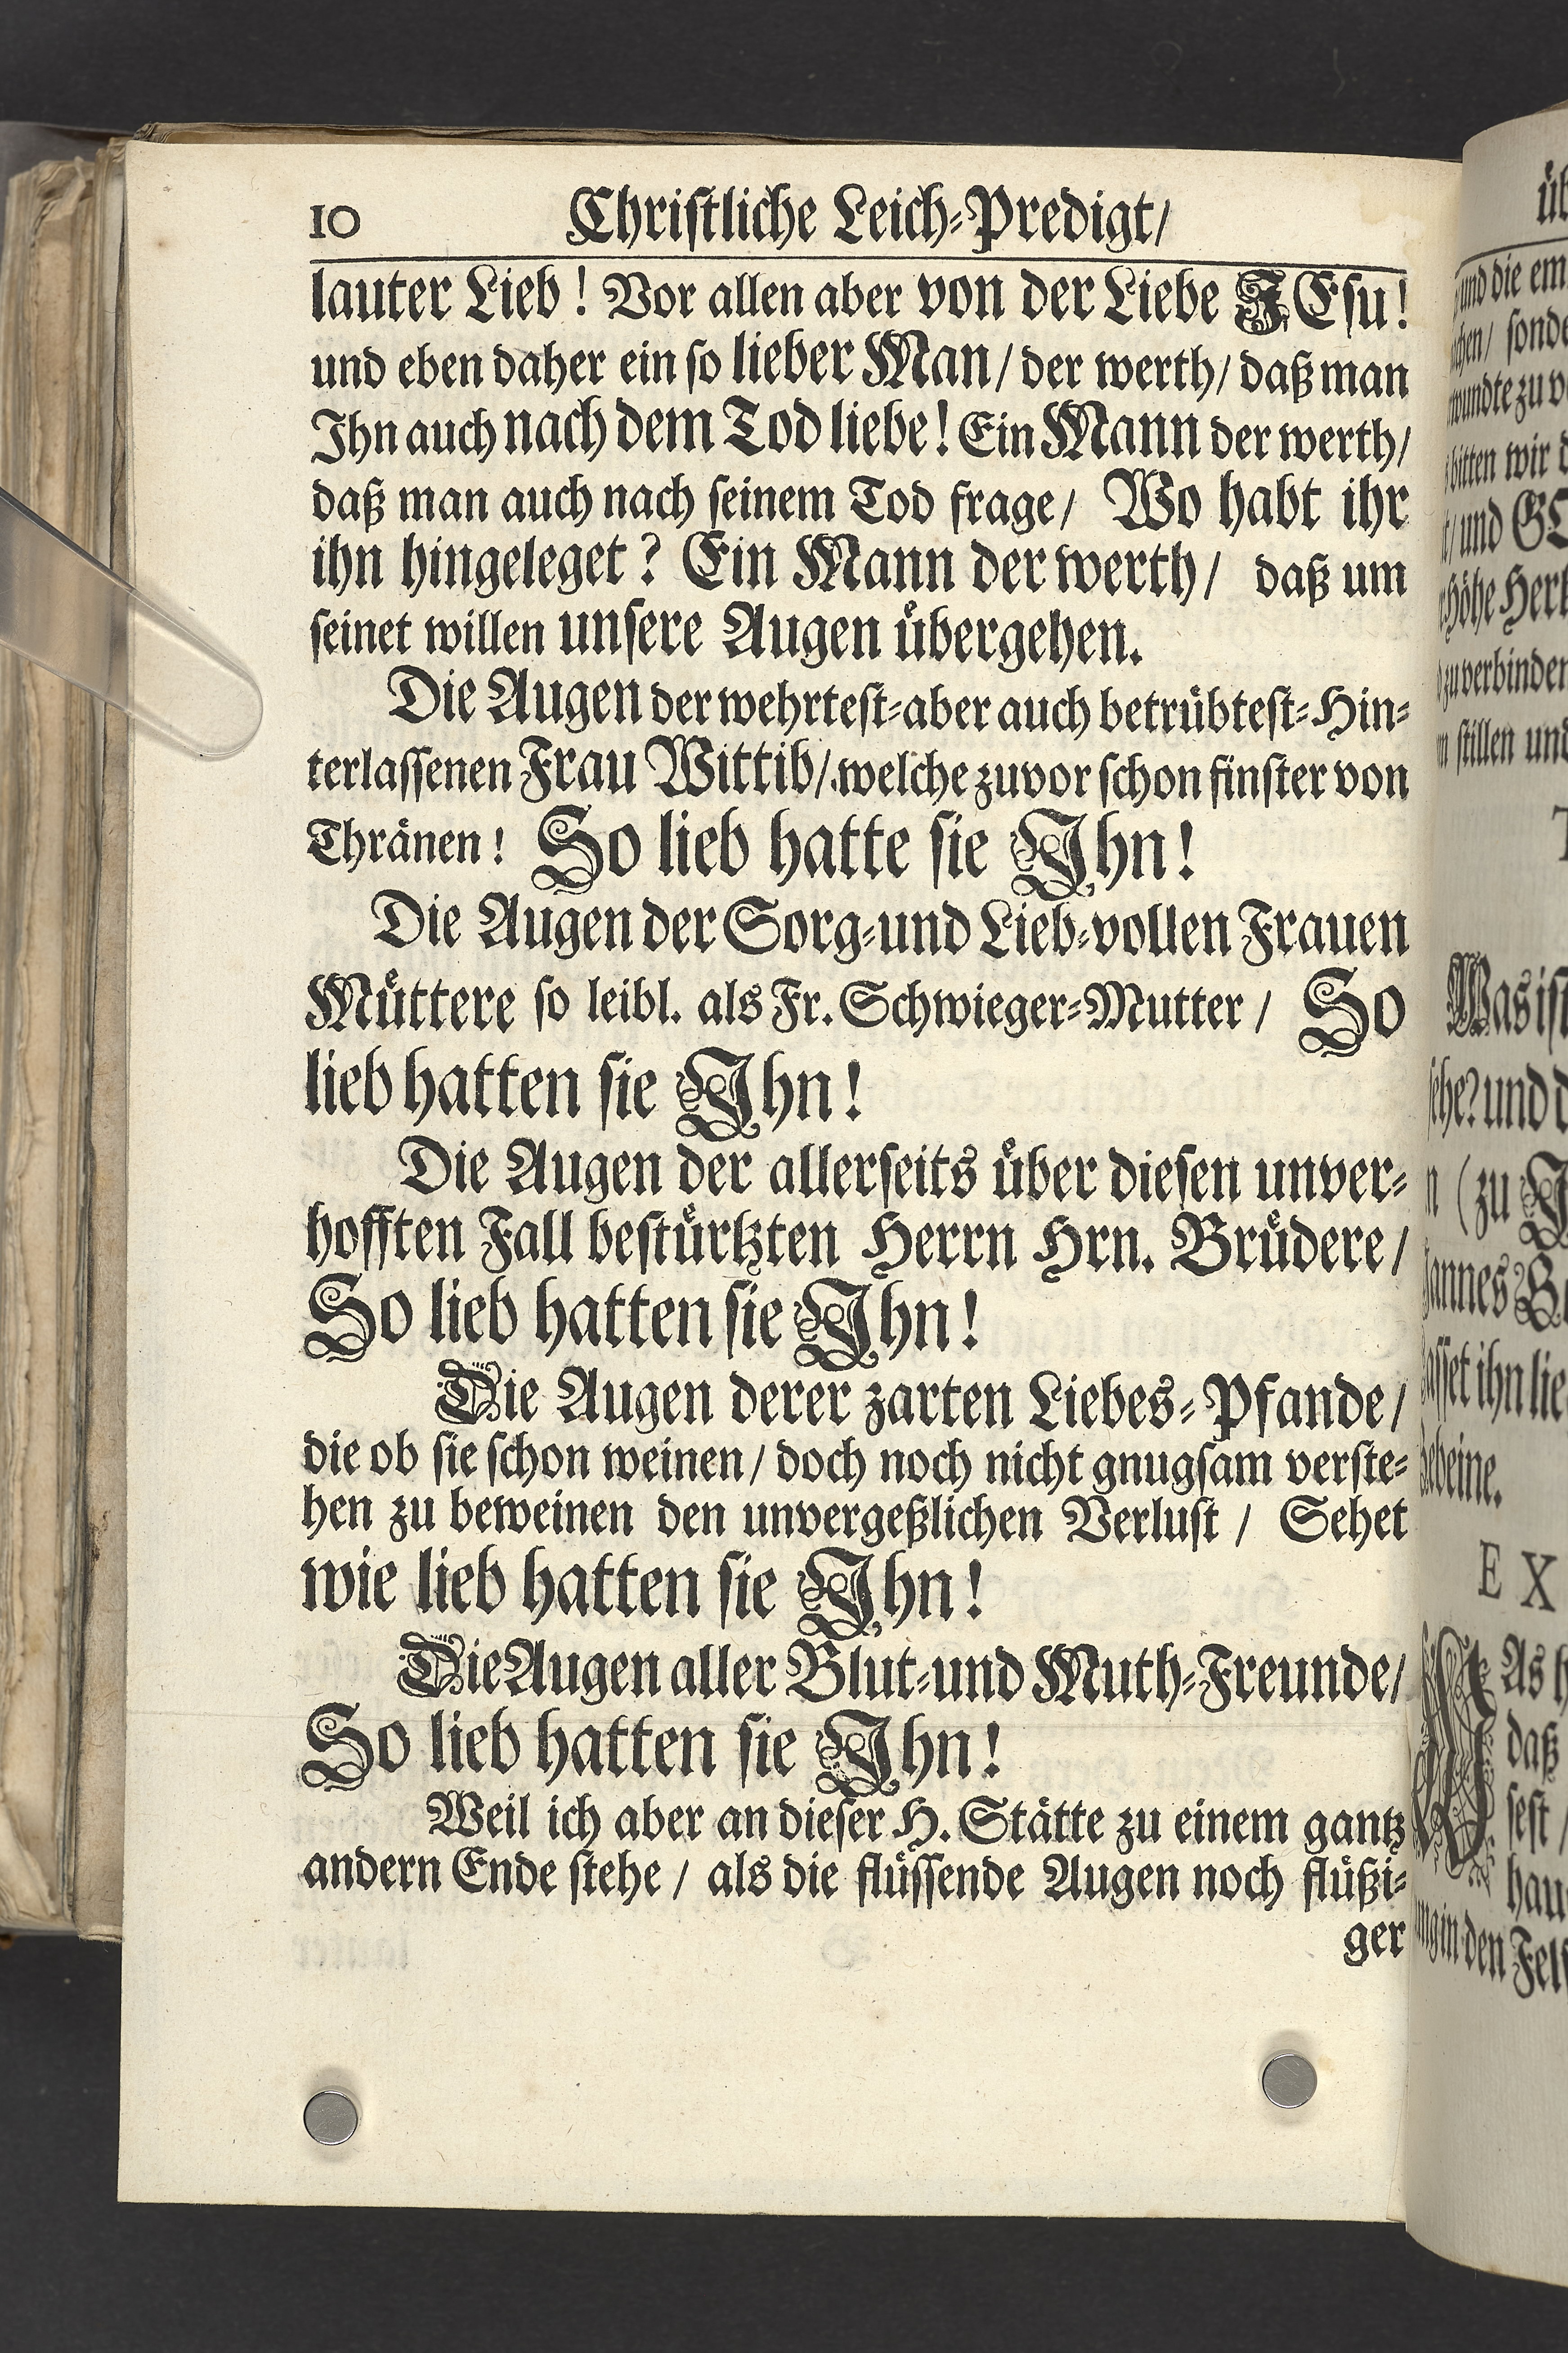 10 Christliche Leich-Predigt/
lauter Lieb! Vor allen aber von der Liebe JEsu!
und eben daher ein so lieber Man/ der werth/ daß man
Ihn auch nach dem Tod liebe! Ein Mann der werth/
daß man auch nach seinem Tod frage/ Wo habt ihr
ihn hingeleget? Ein Mann der werth/ daß um
seinet willen unsere Augen übergehen.
Die Augen der wehrtest-aber auch betrübtest-Hin-
terlassenen Frau Wittib/ welche zuvor schon finster von
Thränen! So lieb hatte sie Ihn!
Die Augen der Sorg-und Lieb-vollen Frauen
Müttere so leibl. als Fr. Schwieger-Mutter/ So
lieb hatten sie Ihn!
Die Augen der allerseits über diesen unver-
hofften Fall bestürtzten Herrn Hrn. Brüdere/
So lieb hatten sie Ihn!
Die Augen derer zarten Liebes-Pfande/
die ob sie schon weinen/ doch noch nicht gnugsam verste-
hen zu beweinen den unvergeßlichen Verlust/ Sehet
wie lieb hatten sie Ihn!
Die Augen aller Blut-und Muth-Freunde/
So lieb hatten sie Ihn!
Weil ich aber an dieser H. Stätte zu einem gantz
andern Ende stehe/ als die flüssende Augen noch flüßi-
ger
und die
bitten wir
und
zu verbinden
stillen und
Was ist
und
(zu
ihn
EX
As
daß
in den